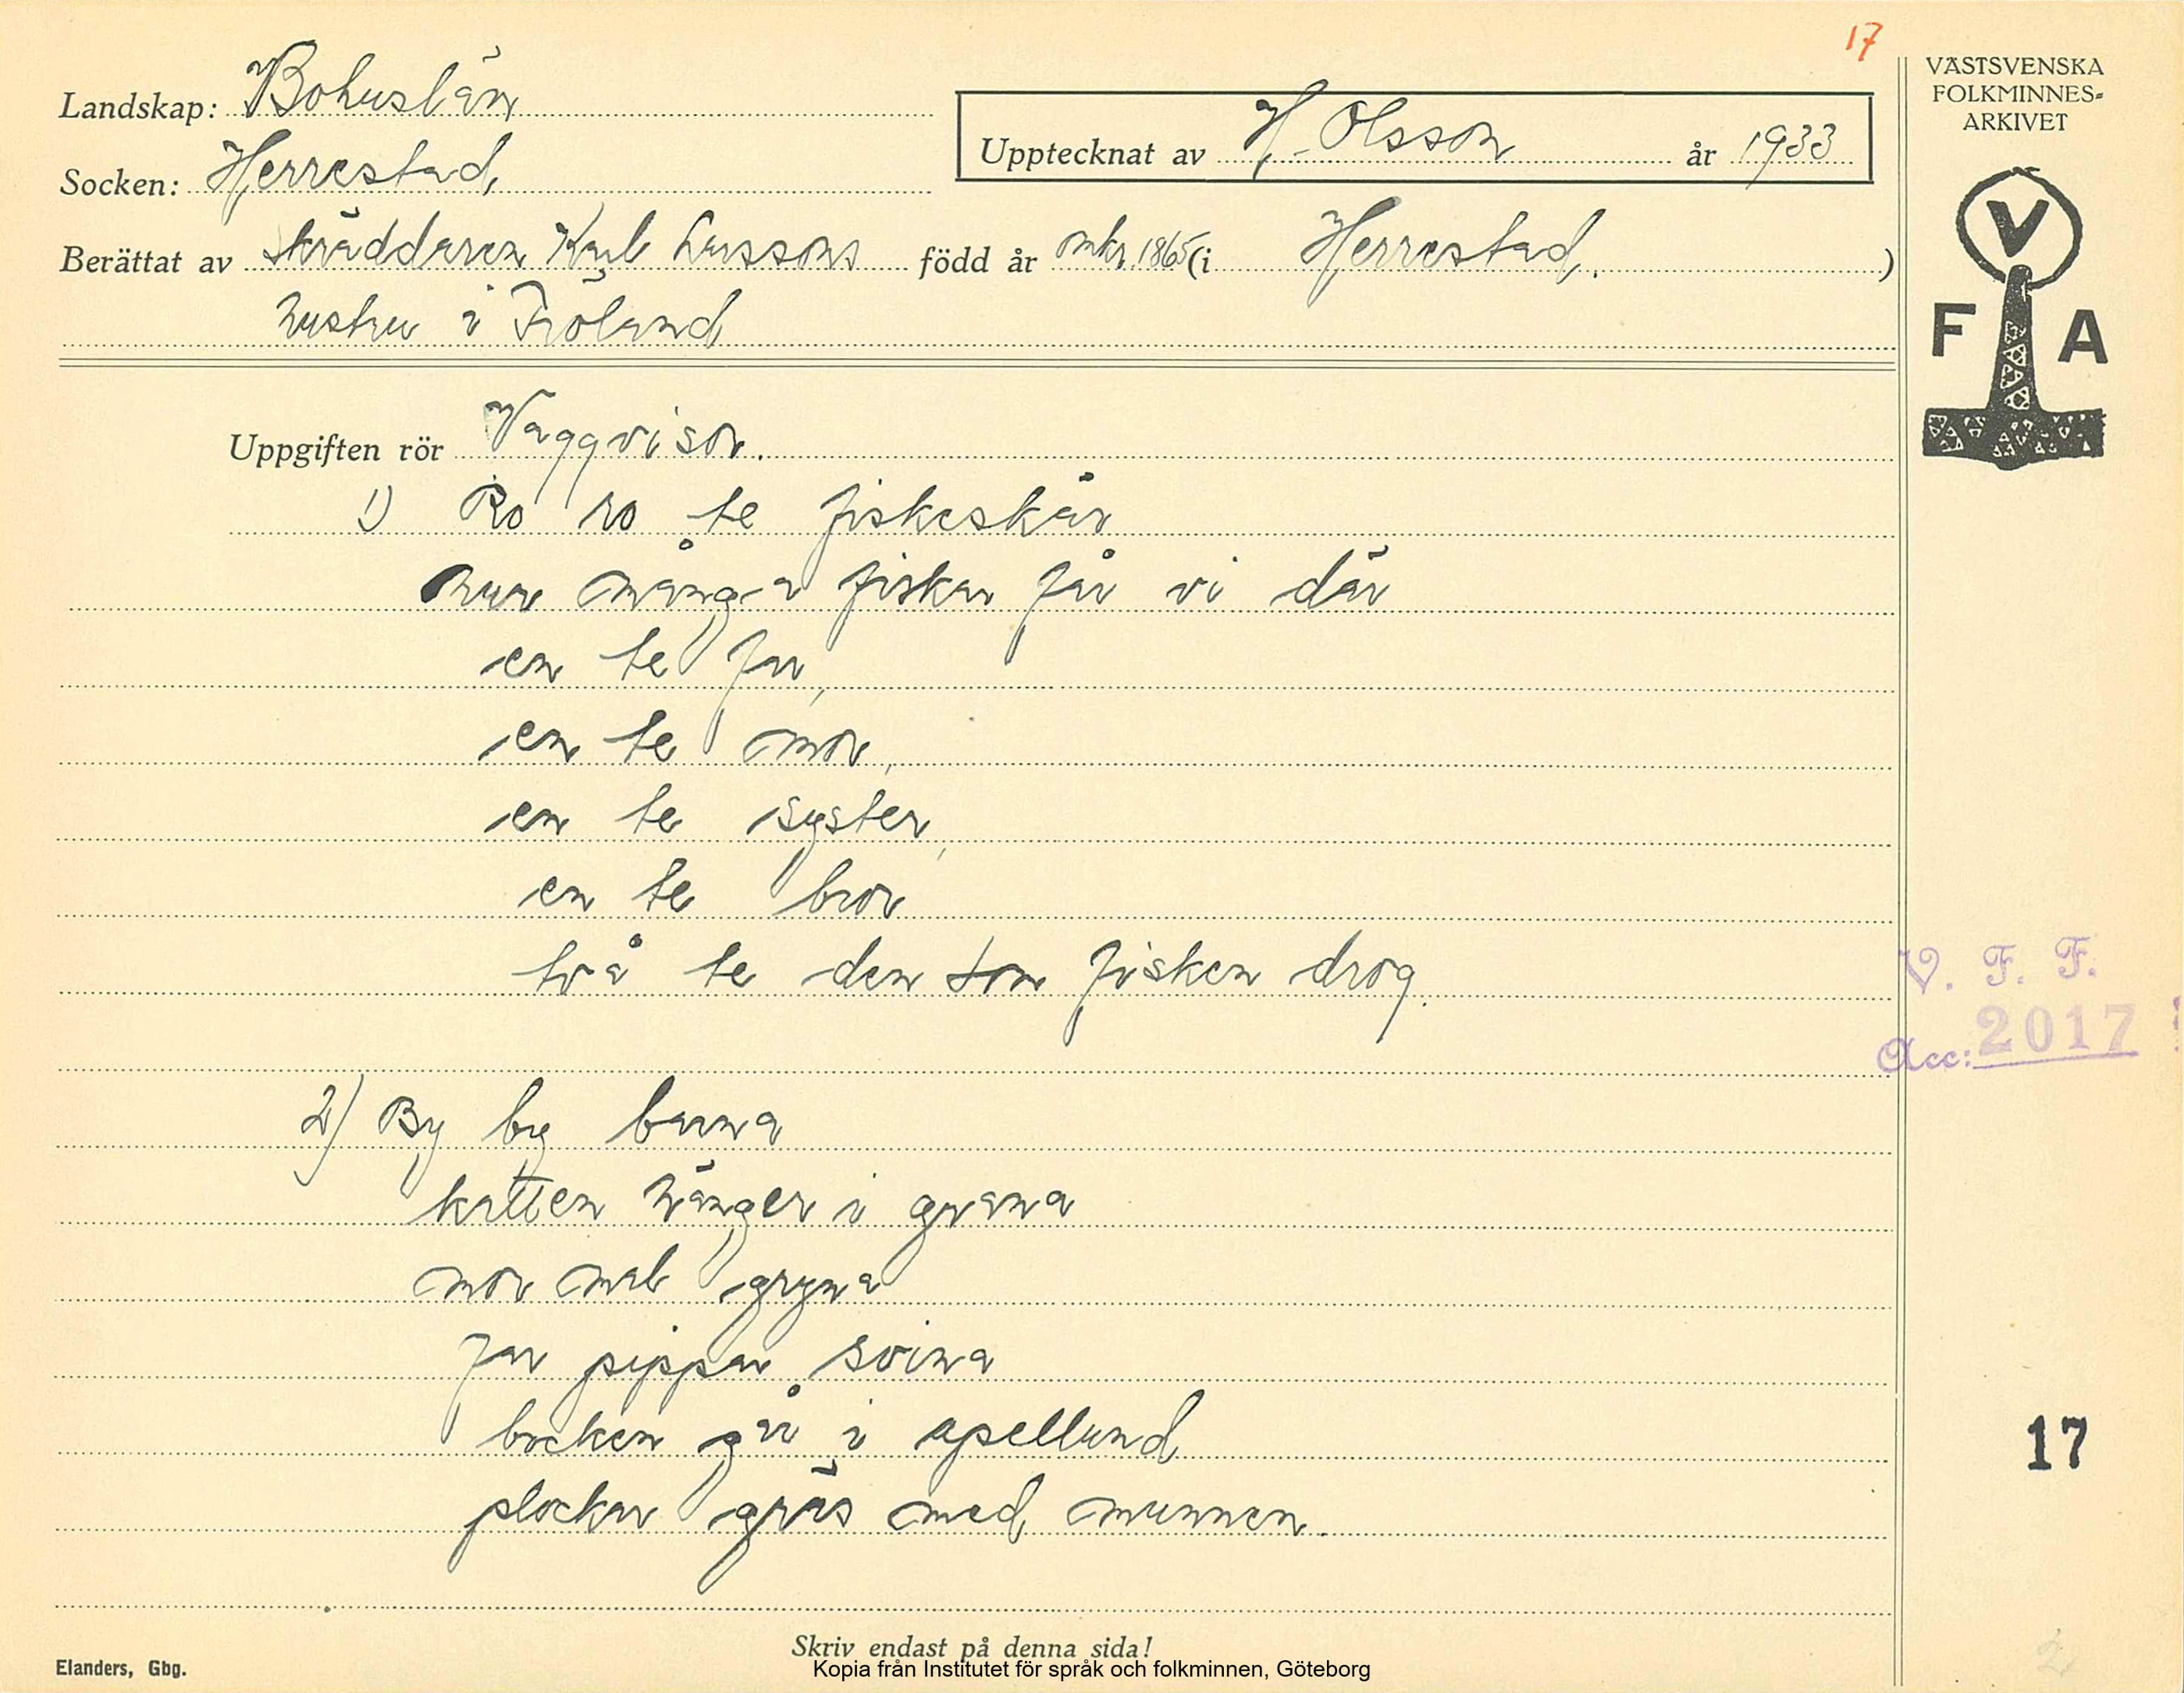 17
VÄSTSVENSKA
FOLKMINNES-
ARKIVET
Landskap: Bohuslän
Upptecknat av H. Olsson år 1933
Socken: Herrestad
Berättat av skräddaren Karl Larssons född år omkr. 1865 (i Herrestad. )
hustru i Fröland
V
F A
Uppgiften rör Vaggvisor.
1) Ro ro te fiskeskär
hur många fiskar får vi där
en te far,
en te mor,
en te syster,
en te bror
två te den som fisken drog.
V. F. F.
Acc: 2017
2) By by barna
katten hänger i grana
mor mal gryna
far pippar svina
bocken går i apellund
plockar gräs med munnen.
17
2
Skriv endast på denna sida!
Elanders, Gbg.
Kopia från Institutet för språk och folkminnen, Göteborg